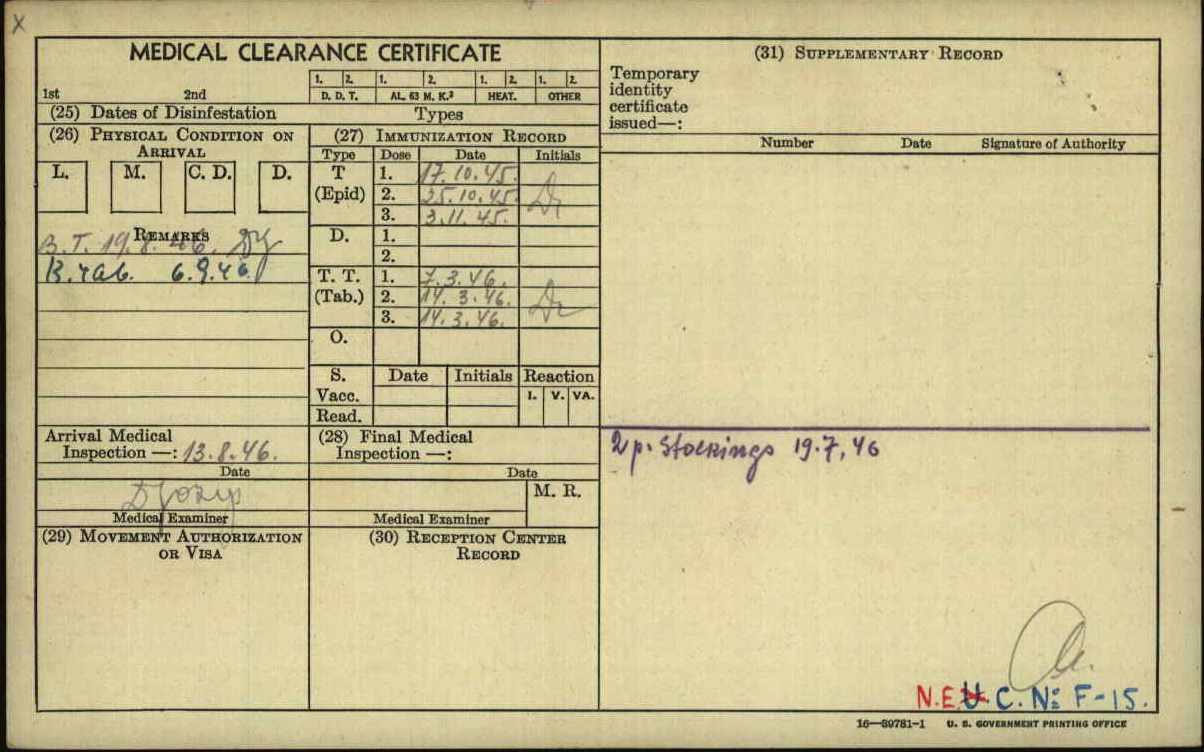 X
MEDICAL CLEARANCE CERTIFICATE
1. 2. 1. 2. 1. 2. 1. 2.
1st 2nd D. D. T. AL. 63 M. K.² HEAT. OTHER
(25) Dates of Disinfestation Types
(26) PHYSICAL CONDITION ON ARRIVAL
L. M. C. D. D.
REMARKS
B.T. 19.8.46.
6.9.46.
(27) IMMUNIZATION RECORD
Type Dose Date Initials
T (Epid) 1. 17.10.45. Dr
2. 25.10.45.
3. 3.11.45.
D. 1.
2.
T. T. (Tab.) 1. 7.3.46.
2. 14.3.46. Dr
3. 14.3.46.
O.
S. Date Initials Reaction
Vacc. I. V. VA.
Read.
Arrival Medical
Inspection —: 13.8.46.
Date
Medical Examiner
(28) Final Medical
Inspection —:
Date
M. R.
Medical Examiner
(29) MOVEMENT AUTHORIZATION
OR VISA
(30) RECEPTION CENTER
RECORD
(31) SUPPLEMENTARY RECORD
Temporary
identity
certificate
issued—:
Number Date Signature of Authority
2 p. Stockings 19.7.46
N.E.U.C. N: F-15.
16—39781-1 U. S. GOVERNMENT PRINTING OFFICE